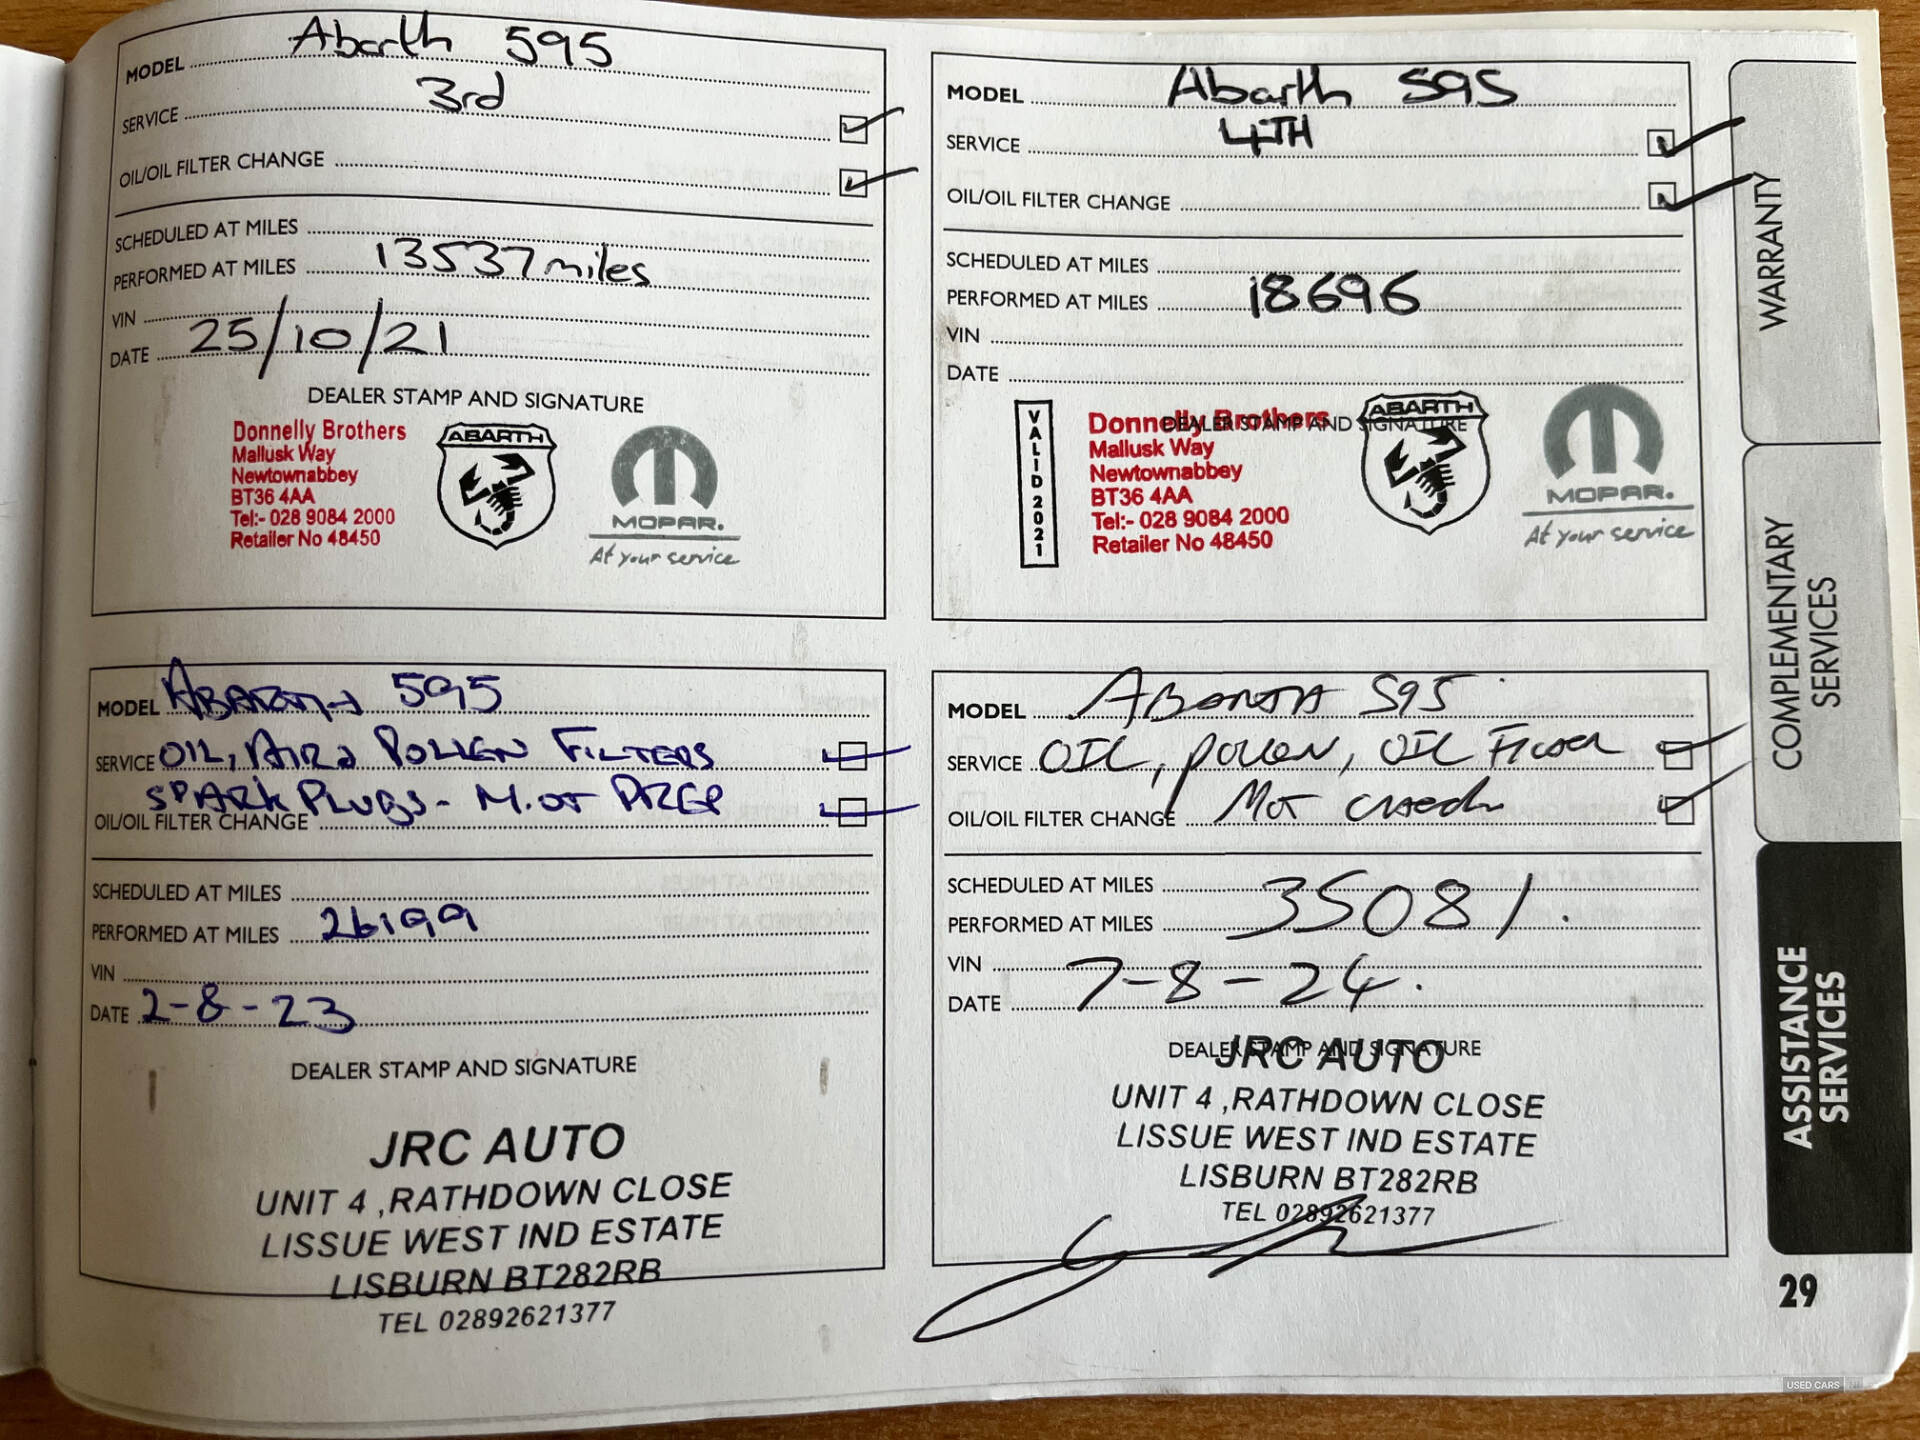 MODEL Abarth 595
SERVICE 3rd
OIL/OIL FILTER CHANGE
SCHEDULED AT MILES
PERFORMED AT MILES 13537 miles
VIN
DATE 25/10/21
DEALER STAMP AND SIGNATURE
Donnelly Brothers
Mallusk Way
Newtownabbey
BT36 4AA
Tel:- 028 9084 2000
Retailer No 48450
ABARTH
MOPAR.
At your service
MODEL Abarth 595
SERVICE 4TH
OIL/OIL FILTER CHANGE
SCHEDULED AT MILES
PERFORMED AT MILES 18696
VIN
DATE
DEALER STAMP AND SIGNATURE
VALID 2021
Donnelly Brothers
Mallusk Way
Newtownabbey
BT36 4AA
Tel:- 028 9084 2000
Retailer No 48450
ABARTH
MOPAR.
At your service
MODEL ABARTH 595
SERVICE OIL, AIR & POLLEN FILTERS
SPARK PLUGS - M.OT PREP
OIL/OIL FILTER CHANGE
SCHEDULED AT MILES
PERFORMED AT MILES 26199
VIN
DATE 2-8-23
DEALER STAMP AND SIGNATURE
JRC AUTO
UNIT 4 ,RATHDOWN CLOSE
LISSUE WEST IND ESTATE
LISBURN BT282RB
TEL 02892621377
MODEL ABARTH 595
SERVICE OIL, pollen, OIL Filter
OIL/OIL FILTER CHANGE Mot check
SCHEDULED AT MILES
PERFORMED AT MILES 35081.
VIN
DATE 7-8-24.
DEALER STAMP AND SIGNATURE
JRC AUTO
UNIT 4 ,RATHDOWN CLOSE
LISSUE WEST IND ESTATE
LISBURN BT282RB
TEL 02892621377
WARRANTY
COMPLEMENTARY
SERVICES
ASSISTANCE
SERVICES
29
USED CARS NI